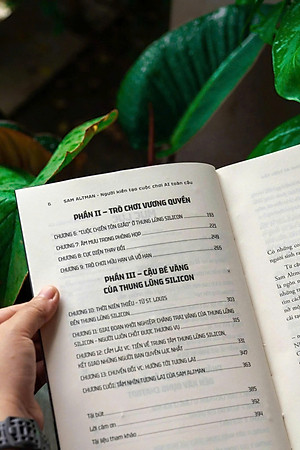 6 SAM ALTMAN - Người kiến tạo cuộc chơi AI toàn cầu
PHẦN II – TRÒ CHƠI VƯƠNG QUYỀN
CHƯƠNG 6: "CUỘC CHIẾN TÔN GIÁO" Ở THUNG LŨNG SILICON 193
CHƯƠNG 7: ÂM MƯU TRONG PHÒNG HỌP 211
CHƯƠNG 8: CỤC DIỆN THAY ĐỔI
CHƯƠNG 9: TRÒ CHƠI HỮU HẠN VÀ VÔ HẠN
PHẦN III – CẬU BÉ VÀNG
CỦA THUNG LŨNG SILICON
CHƯƠNG 10: THỜI NIÊN THIẾU - TỪ ST. LOUIS
ĐẾN THUNG LŨNG SILICON 303
CHƯƠNG 11: GIAI ĐOẠN KHỞI NGHIỆP CHẶNG TRẢI VÀNG CỦA THUNG LŨNG
SILICON - NGƯỜI LUÔN CHỐT ĐƯỢC THƯƠNG VỤ 315
CHƯƠNG 12: CẦM LÁI YC, TIẾN VỀ TRUNG TÂM THUNG LŨNG SILICON,
KẾT GIAO NHỮNG NGƯỜI BẠN QUYỀN LỰC NHẤT
CHƯƠNG 13: CHUYỂN ĐỔI VC, HƯỚNG TỚI TƯƠNG LAI 363
CHƯƠNG CUỐI: TẦM NHÌN TƯƠNG LAI CỦA SAM ALTMAN
Tái bút 385
Lời cảm ơn 392
Tài liệu tham khảo 394
Có những
người sinh ra
Từ cậ
Sam Altm
là ngôn n